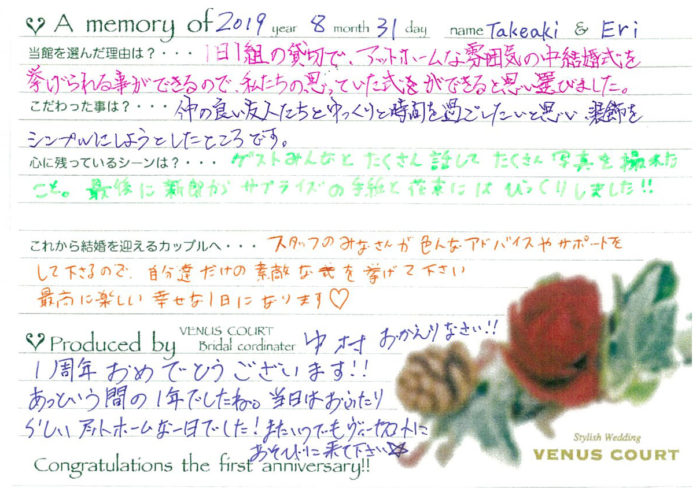 A memory of 2019 year 8 month 31 day name Takeaki & Eri
当館を選んだ理由は？・・・1日1組の貸切で、アットホームな雰囲気の中結婚式を
挙げられる事ができるので、私たちの思っていた式をができると思い選びました。
こだわった事は？・・・仲の良い友人たちとゆっくりと時間を過ごしたいと思い、装飾を
シンプルにしようとしたところです。
心に残っているシーンは？・・・ゲストみんなと たくさん 話して たくさん 写真を 撮れた
こと。最後に 新郎から サプライズの手紙と 花束には びっくりしました!!
これから結婚を迎えるカップルへ・・・スタッフのみなさんが 色んなアドバイスや サポートを
して下さるので、自分達だけの素敵な式を挙げて下さい
最高に楽しい 幸せな1日になります♡
Produced by VENUS COURT Bridal cordinater 中村 おかえりなさい!!
1周年おめでとうございます!!
あっという間の1年でしたね。当日はおふたり
らしい アットホームな一日でした！またいつでもヴィーナスコートに
あそびに来て下さい☆
Congratulations the first anniversary!!
Stylish Wedding
VENUS COURT